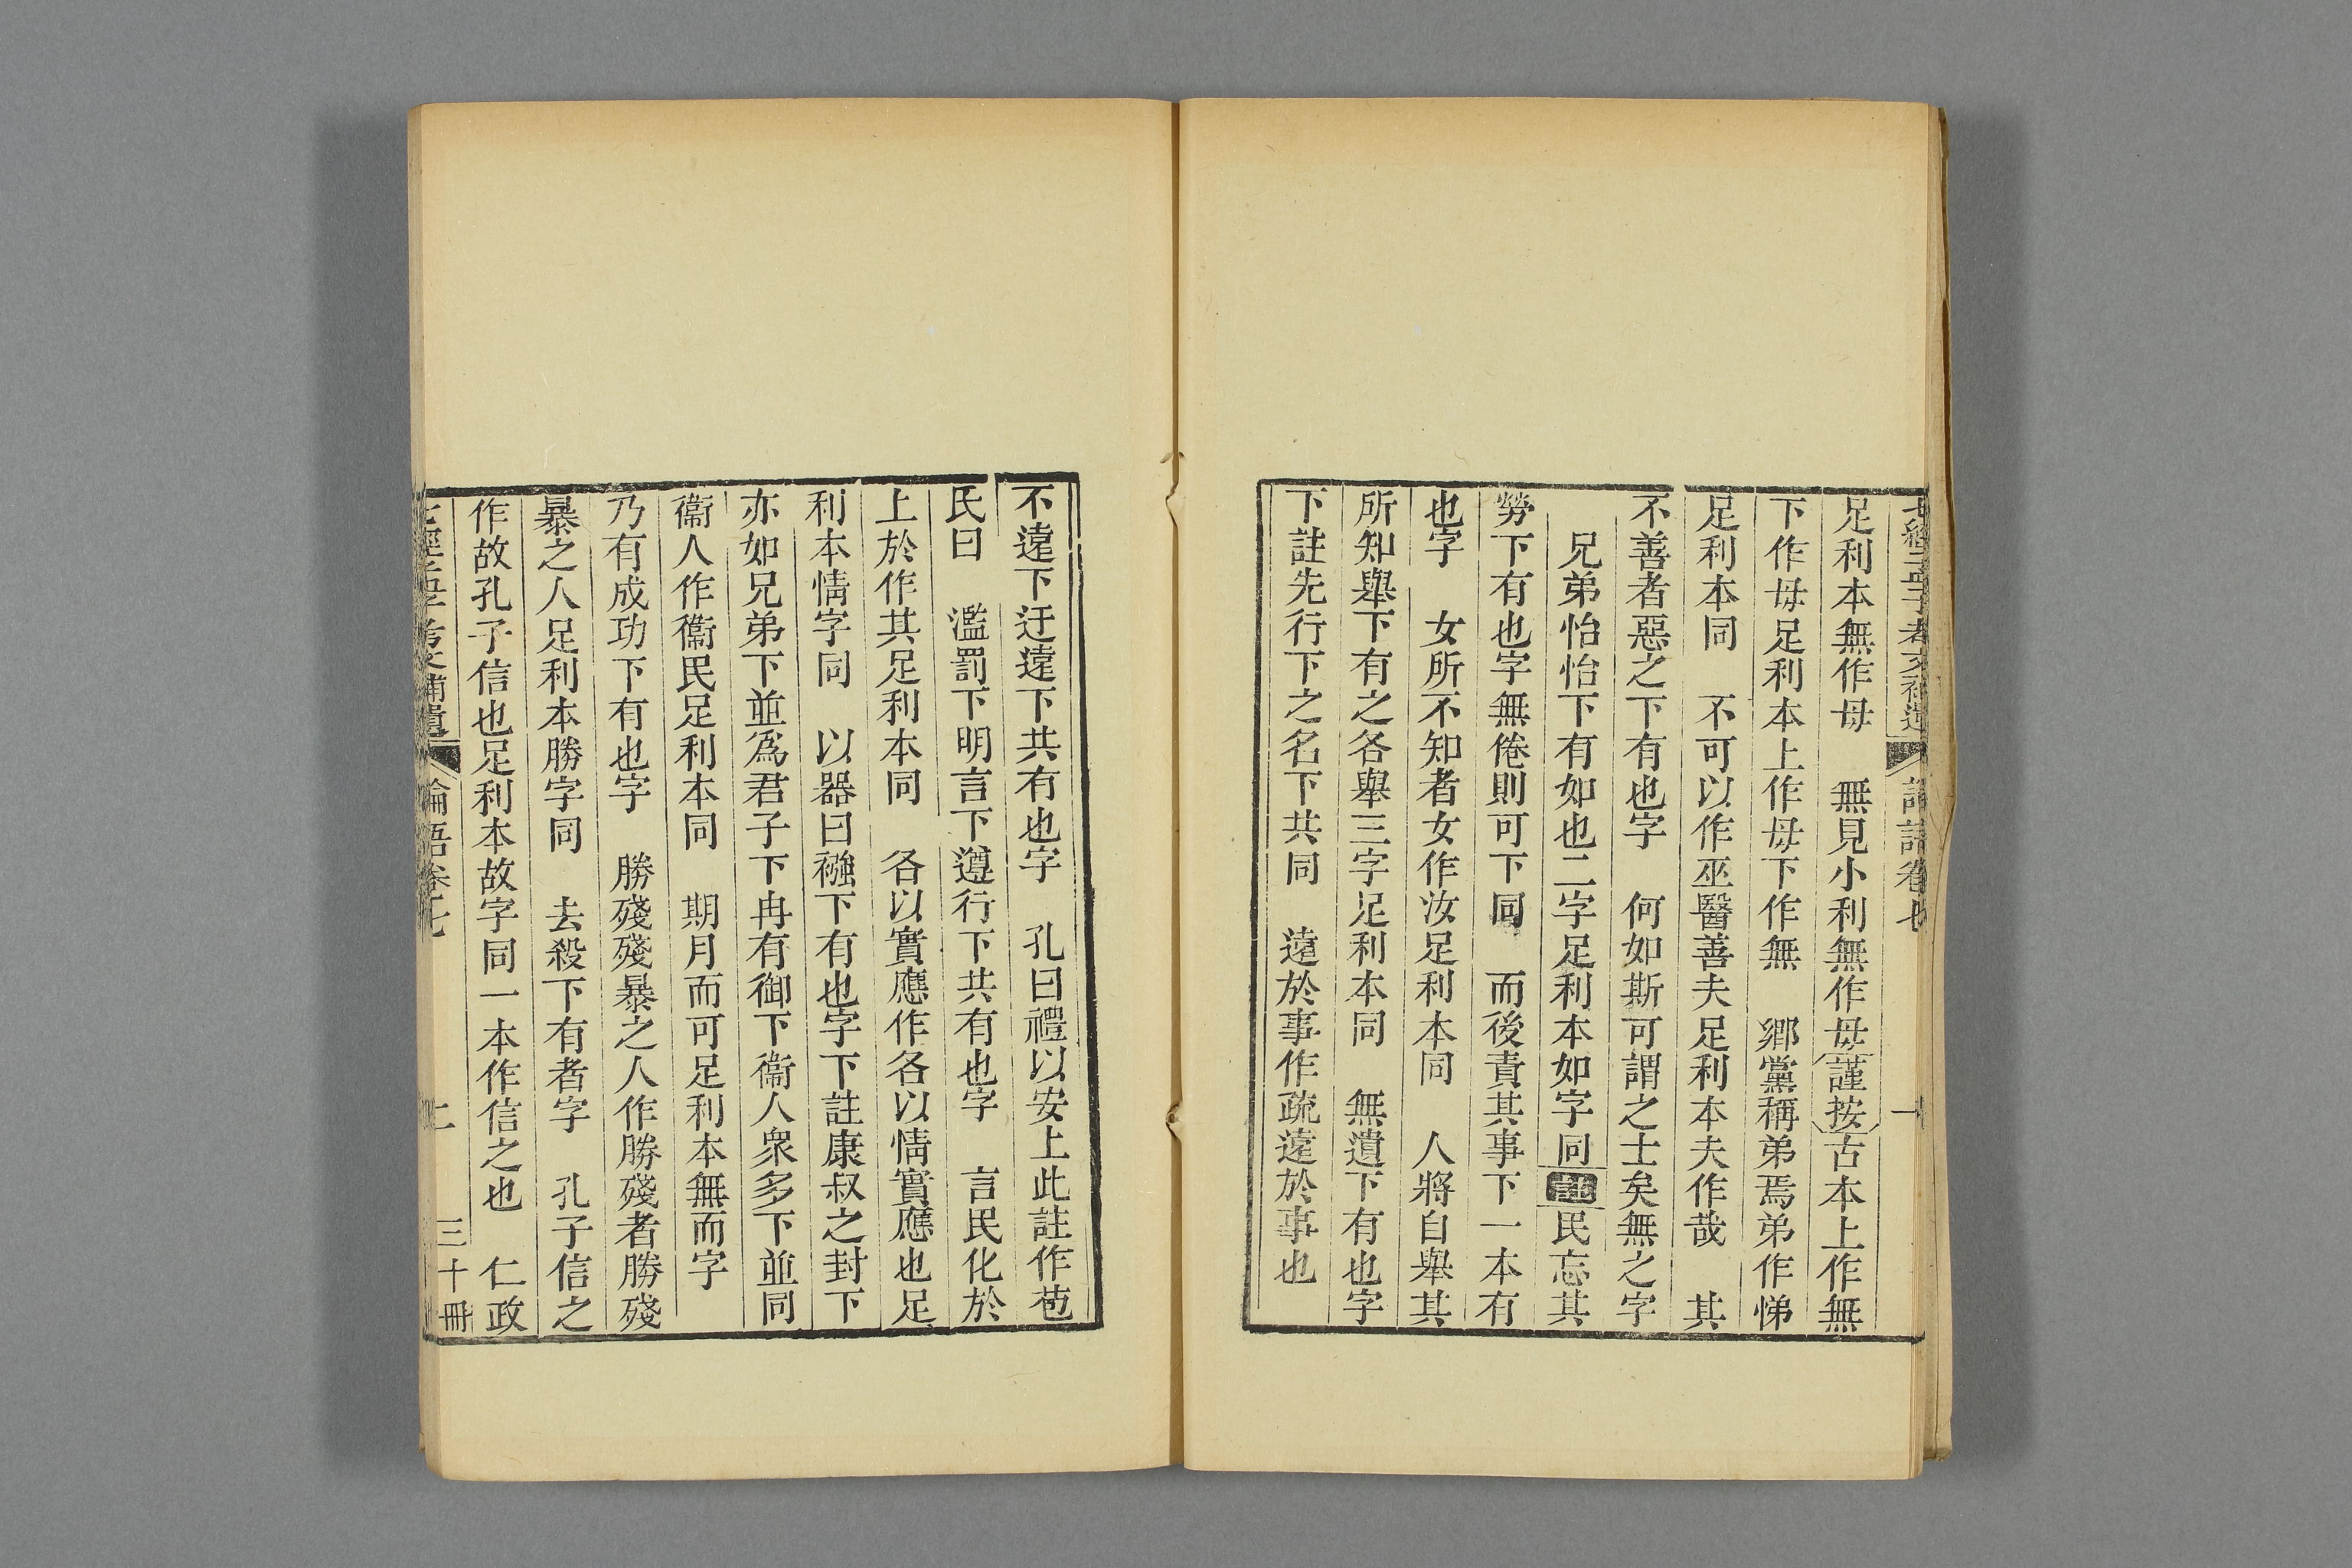 足利本無作毋　無見小利無作毋謹按古本上作無
下作毋足利本上作毋下作無　鄉黨稱弟焉弟作悌
足利本同　不可以作巫醫善夫足利本夫作哉　其
不善者惡之下有也字　何如斯可謂之士矣無之字
兄弟怡怡下有如也二字足利本如字同註民忘其
勞下有也字無倦則可下同　而後責其事下一本有
也字　女所不知者女作汝足利本同　人將自舉其
所知舉下有之各舉三字足利本同　無遺下有也字
下註先行下之名下共同　遠於事作疏遠於事也
不遠下迂遠下共有也字　孔曰禮以安上此註作苞
氏曰　濫罰下明言下遵行下共有也字　言民化於
上於作其足利本同　各以實應作各以情實應也足
利本情字同　以器曰襁下有也字下註康叔之封下
亦如兄弟下並為君子下冉有御下衞人衆多下並同
衞人作衞民足利本同　期月而可足利本無而字
乃有成功下有也字　勝殘殘暴之人作勝殘者勝殘
暴之人足利本勝字同　去殺下有者字　孔子信之
作故孔子信也足利本故字同一本作信之也　仁政
論語卷七　二　三十冊